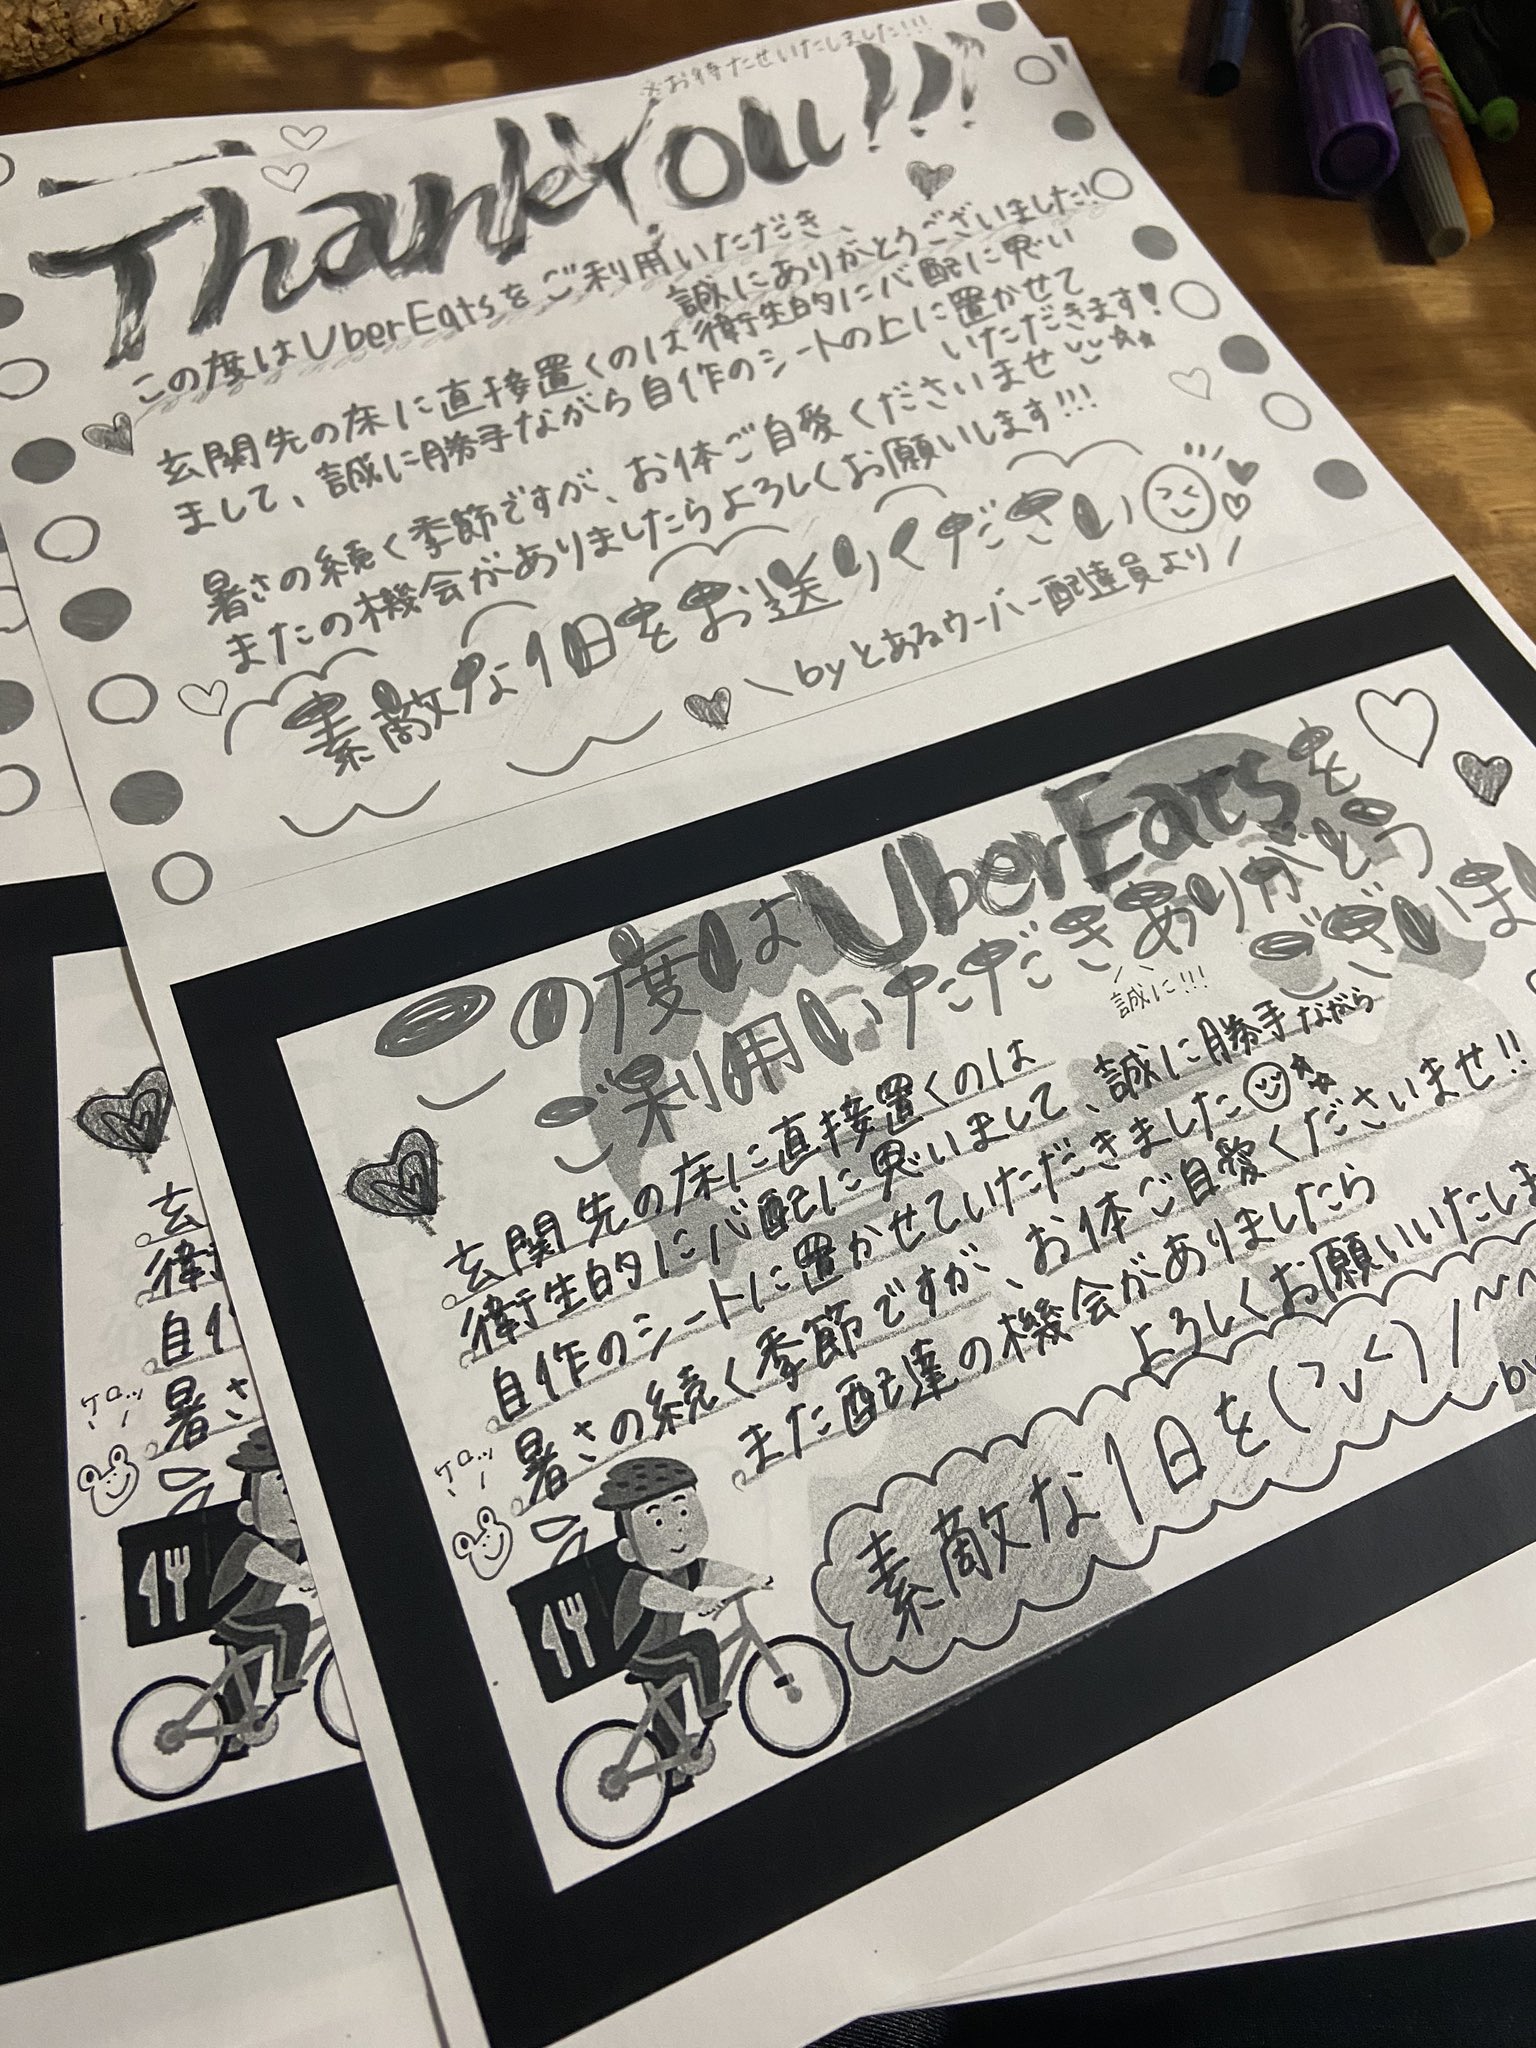 ※お待たせいたしました!!!
Thank You!!!
この度はUberEatsをご利用いただき、
誠にありがとうございました!
玄関先の床に直接置くのは衛生的にバ配に思い
まして、誠に勝手ながら自作のシートの上に置かせて
いただきます!
暑さの続く季節ですが、お体ご自愛くださいませ
またの機会がありましたらよろしくお願いします!!!
素敵な1日をお送りください
\byとあるウーバー配達員より/
この度はUberEatsを
ご利用いただきありがとう
誠に!!!
ございま
玄関先の床に直接置くのは
衛生的にバ配に思いまして、誠に勝手ながら
自作のシートに置かせていただきました
暑さの続く季節ですが、お体ご自愛くださいませ!!
また配達の機会がありましたら
よろしくお願いいたしま
ケロッ
素敵な1日を
by
玄
衛生
自作
暑さ
ケロッ